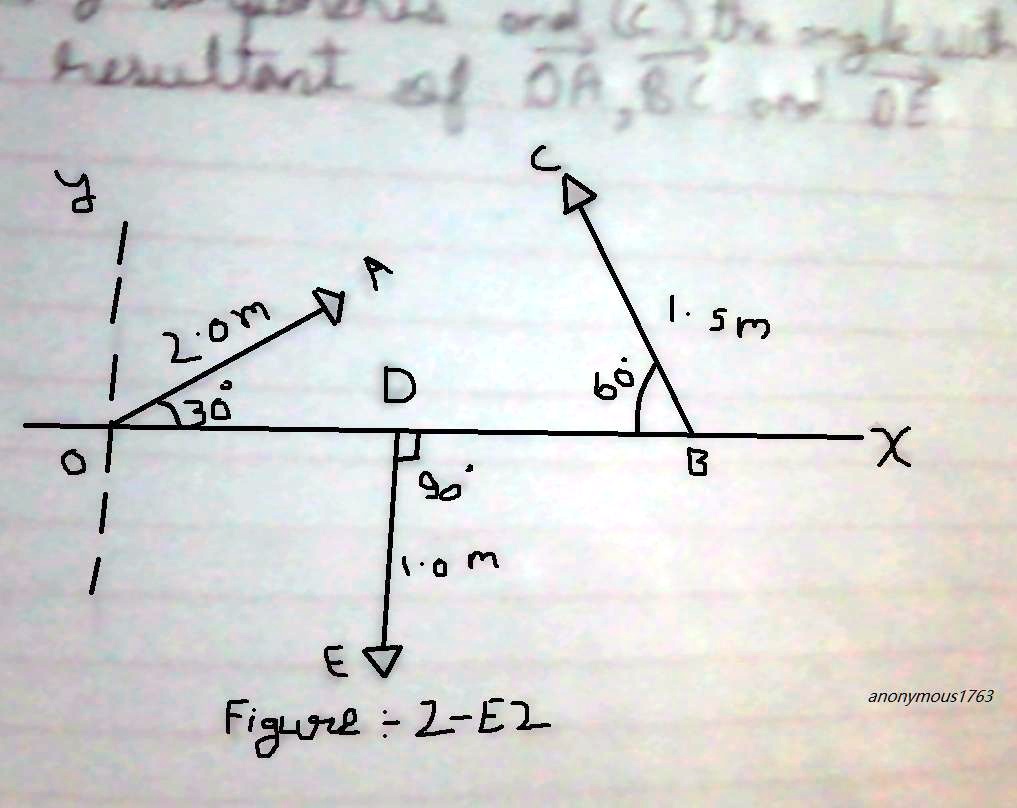 and (c) the angle with
resultant of OA, BC and OE
Y
C
A
2.0m
1.5m
D
60°
30°
O
B
X
90°
1.0 m
E
Figure :- 2-E2
anonymous1763